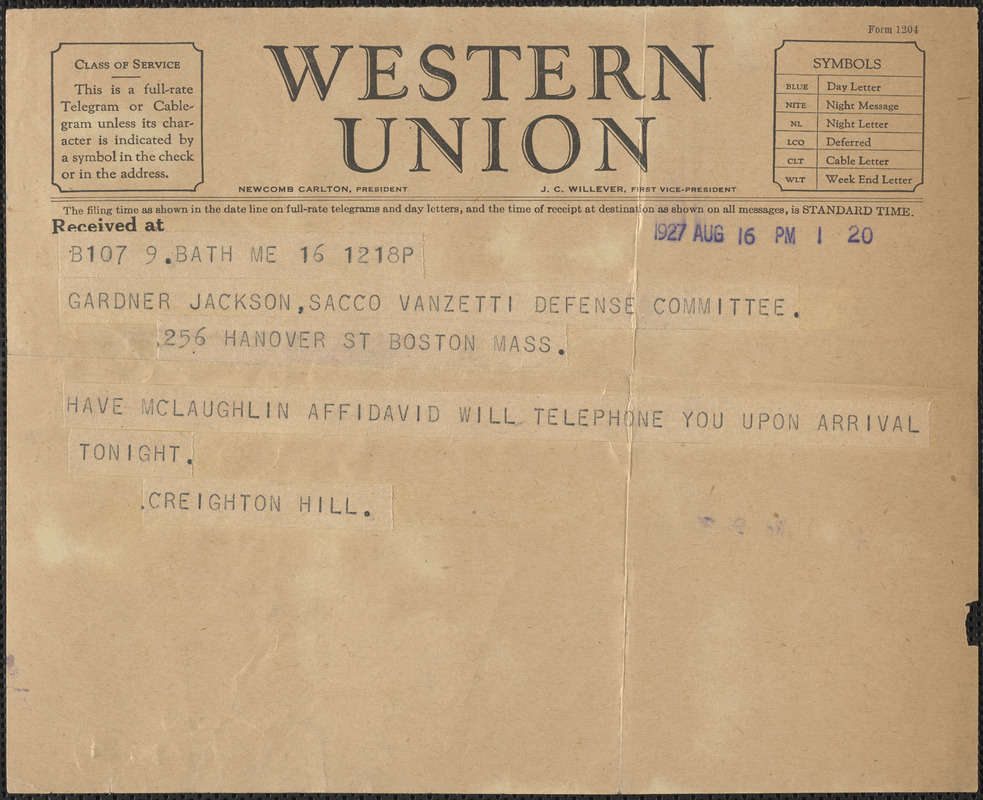 Form 1204
CLASS OF SERVICE
This is a full-rate
Telegram or Cable-
gram unless its char-
acter is indicated by
a symbol in the check
or in the address.
WESTERN
UNION
NEWCOMB CARLTON, PRESIDENT
J. C. WILLEVER, FIRST VICE-PRESIDENT
SYMBOLS
BLUE Day Letter
NITE Night Message
NL Night Letter
LCO Deferred
CLT Cable Letter
WLT Week End Letter
The filing time as shown in the date line on full-rate telegrams and day letters, and the time of receipt at destination as shown on all messages, is STANDARD TIME.
Received at
1927 AUG 16 PM 1 20
B107 9.BATH ME 16 1218P
GARDNER JACKSON,SACCO VANZETTI DEFENSE COMMITTEE.
.256 HANOVER ST BOSTON MASS.
HAVE MCLAUGHLIN AFFIDAVID WILL TELEPHONE YOU UPON ARRIVAL
TONIGHT.
.CREIGHTON HILL.